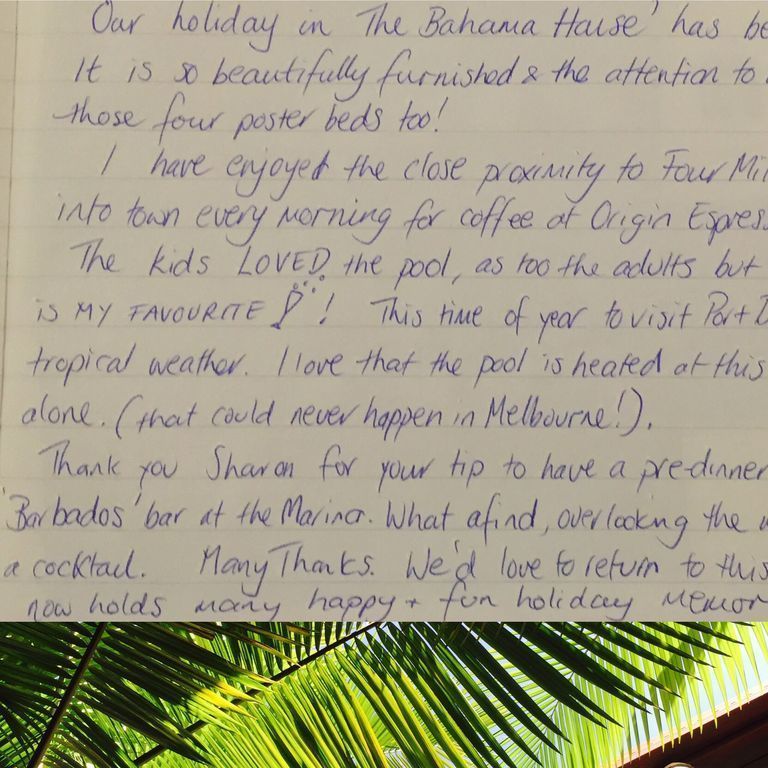 Our holiday in 'The Bahama House' has be
It is so beautifully furnished & the attention to
those four poster beds too!
I have enjoyed the close proximity to Four Mil
into town every morning for coffee at Origin Espres
The kids LOVED the pool, as too the adults but
is MY FAVOURITE ! This time of year to visit Port D
tropical weather. I love that the pool is heated at this
alone. (that could never happen in Melbourne!).
Thank you Sharon for your tip to have a pre-dinner
'Barbados' bar at the Marina. What a find, overlooking the
a cocktail. Many Thanks. We'd love to return to this
now holds many happy + fun holiday memor